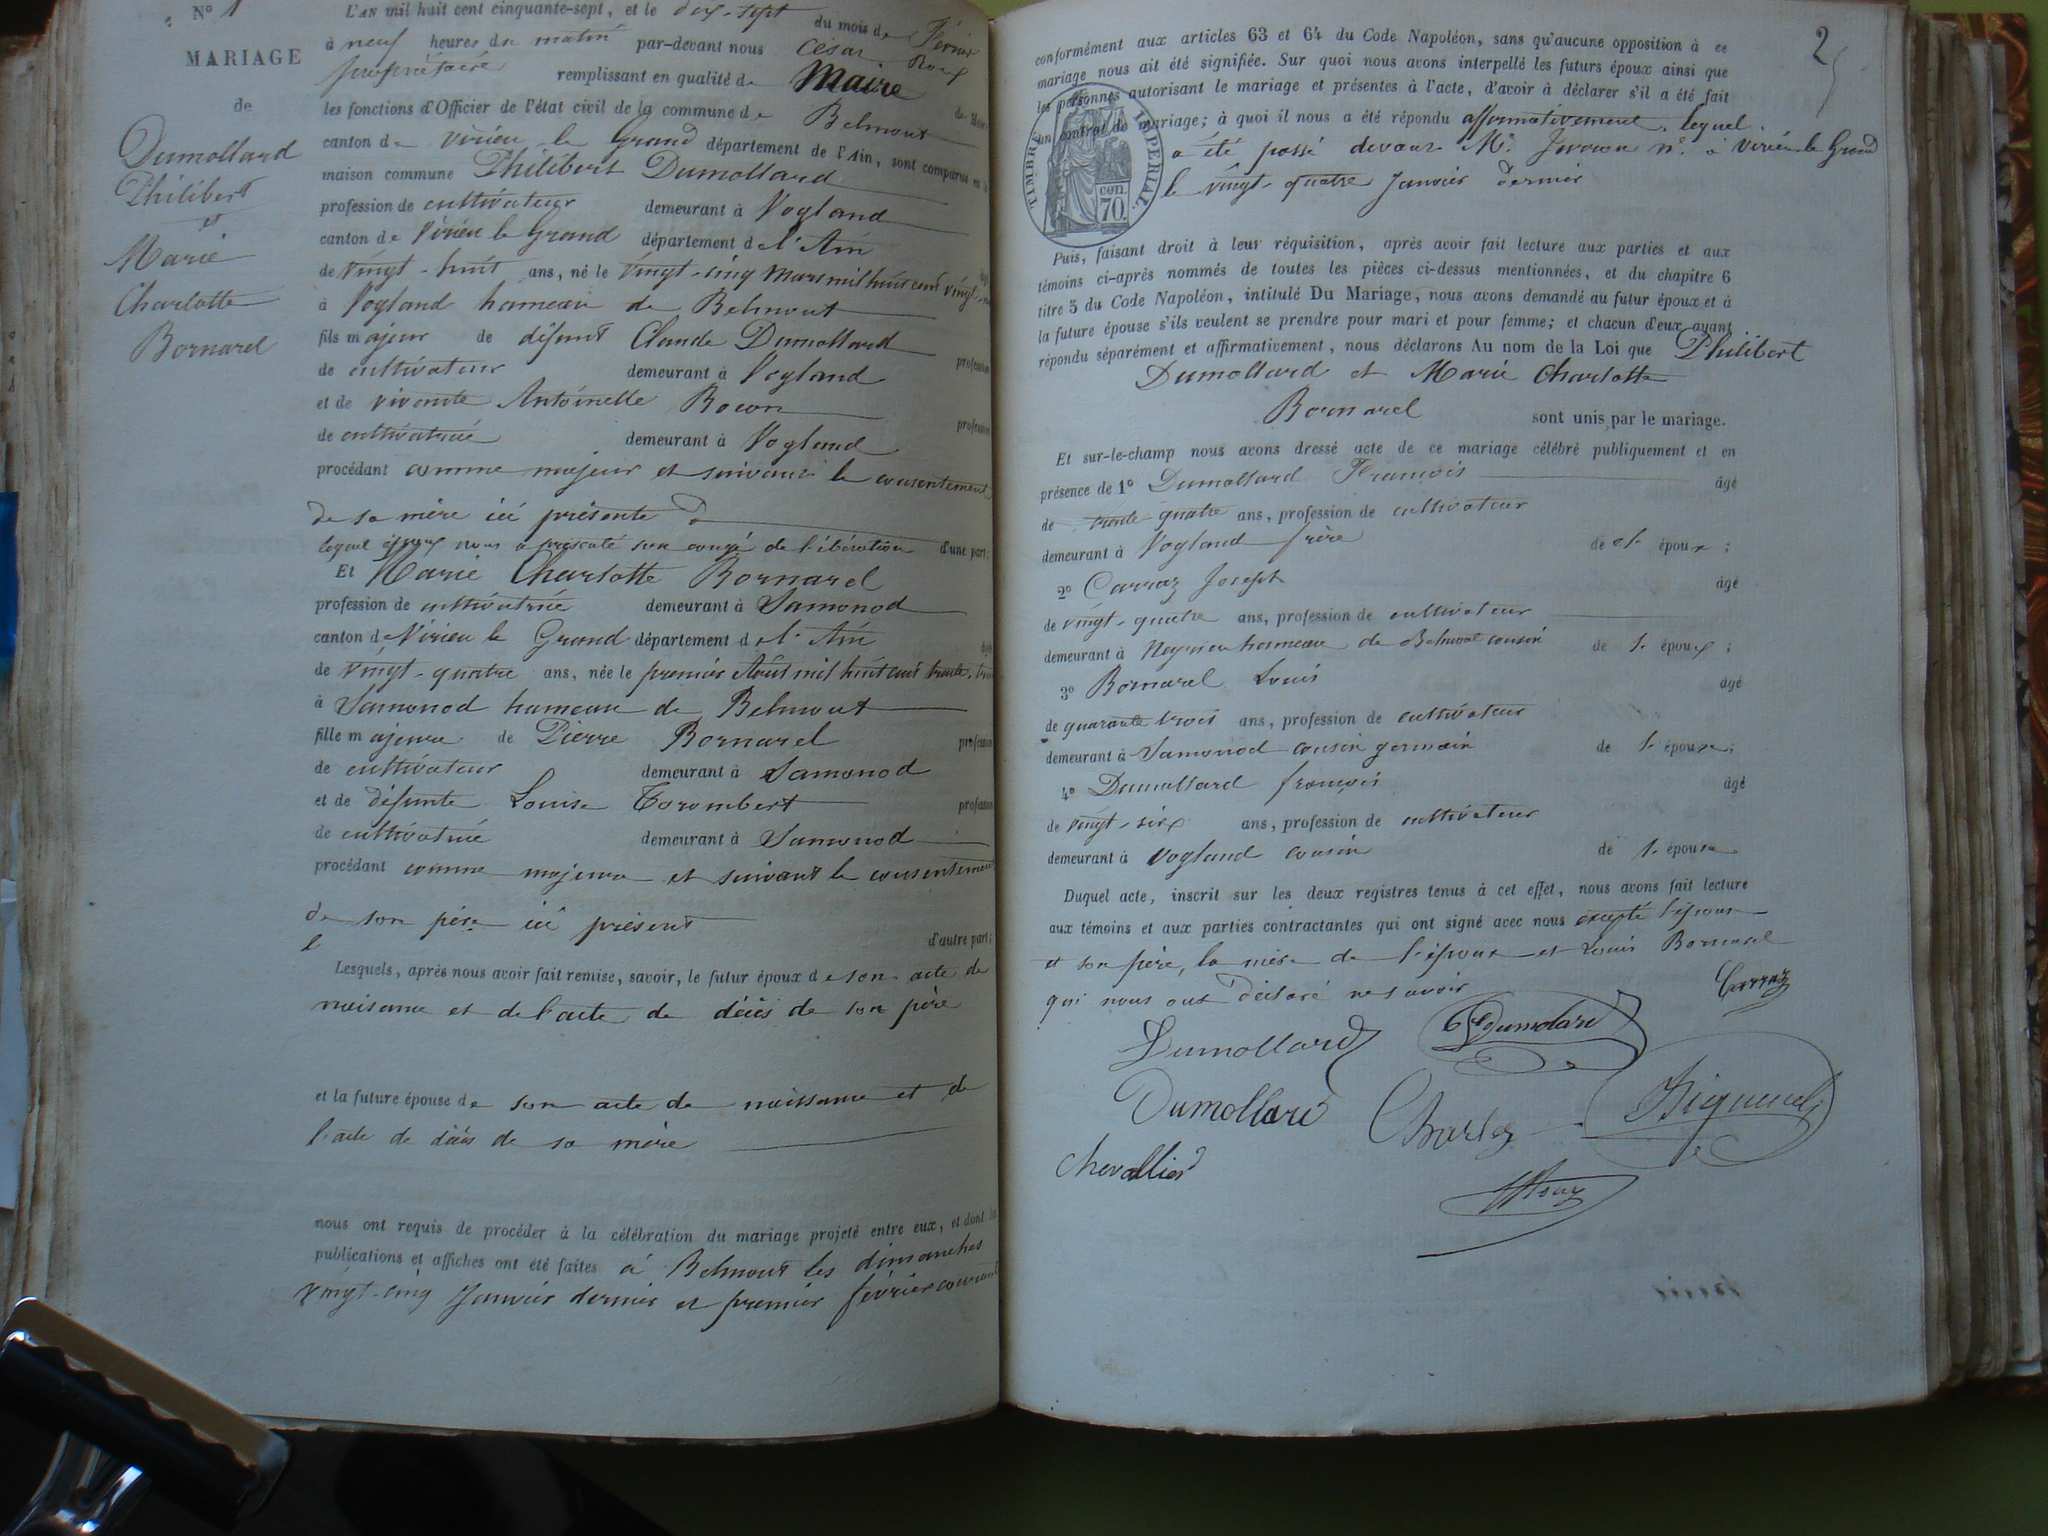 N° 1
MARIAGE
de
Dumollard
Philibert
et
Marie
Charlotte
Bornarel
L'AN mil huit cent cinquante-sept, et le dix-sept du mois de Février
à neuf heures du matin par-devant nous César Roux
propriétaire remplissant en qualité de Maire
les fonctions d'Officier de l'état civil de la commune de Belmont
canton de Virieu le Grand département de l'Ain, sont comparus en la
maison commune Philibert Dumollard
profession de cultivateur demeurant à Vogland
canton de Virieu le Grand département d l'Ain
de vingt-huit ans, né le vingt-cinq mars mil huit cent vingt-
à Vogland hameau de Belmont
fils majeur de défunt Claude Dumollard profession
de cultivateur demeurant à Vogland
et de vivante Antoinette Rocon profession
de cultivatrice demeurant à Vogland
procédant comme majeur et suivant le consentement
de sa mère ici présente
lequel époux nous a présenté son congé de libération d'une part;
Et Marie Charlotte Bornarel
profession de cultivatrice demeurant à Samonod
canton d Virieu le Grand département d l'Ain
de vingt-quatre ans, née le premier Août mil huit cent trente-
à Samonod hameau de Belmont
fille majeure de Pierre Bornarel profession
de cultivateur demeurant à Samonod
et de défunte Louise Torombert profession
de cultivatrice demeurant à Samonod
procédant comme majeure et suivant le consentement
de son père ici présent
d'autre part;
Lesquels, après nous avoir fait remise, savoir, le futur époux de son acte de
naissance et de l'acte de décès de son père
et la future épouse de son acte de naissance et de
l'acte de décès de sa mère
nous ont requis de procéder à la célébration du mariage projeté entre eux, et dont les
publications et affiches ont été faites à Belmont les dimanches
vingt-cinq Janvier dernier et premier février courant
2
conformément aux articles 63 et 64 du Code Napoléon, sans qu'aucune opposition à ce
mariage nous ait été signifiée. Sur quoi nous avons interpellé les futurs époux ainsi que
les personnes autorisant le mariage et présentes à l'acte, d'avoir à déclarer s'il a été fait
un contrat de mariage; à quoi il nous a été répondu affirmativement, lequel
a été passé devant Me. nre. à Virieu le Grand
le vingt-quatre Janvier dernier
TIMBRE IMPERIAL
con.
70.
Puis, faisant droit à leur réquisition, après avoir fait lecture aux parties et aux
témoins ci-après nommés de toutes les pièces ci-dessus mentionnées, et du chapitre 6
titre 5 du Code Napoléon, intitulé Du Mariage, nous avons demandé au futur époux et à
la future épouse s'ils veulent se prendre pour mari et pour femme; et chacun d'eux ayant
répondu séparément et affirmativement, nous déclarons Au nom de la Loi que Philibert
Dumollard et Marie Charlotte
Bornarel sont unis par le mariage.
Et sur-le-champ nous avons dressé acte de ce mariage célébré publiquement et en
présence de 1° Dumollard François âgé
de trente-quatre ans, profession de cultivateur
demeurant à Vogland frère de l' époux;
2° Carraz Joseph âgé
de vingt-quatre ans, profession de cultivateur
demeurant à hameau de Belmont cousin de l' époux;
3° Bornarel Louis âgé
de quarante trois ans, profession de cultivateur
demeurant à Samonod cousin germain de l' épouse;
4° Dumollard françois âgé
de vingt-six ans, profession de cultivateur
demeurant à Vogland cousin de l' épouse
Duquel acte, inscrit sur les deux registres tenus à cet effet, nous avons fait lecture
aux témoins et aux parties contractantes qui ont signé avec nous excepté l'épouse
et son père, la mère de l'époux et Louis Bornarel
qui nous ont déclaré ne savoir
Carraz
Dumollard
Dumolard
Dumollard
Chevallier
Roux